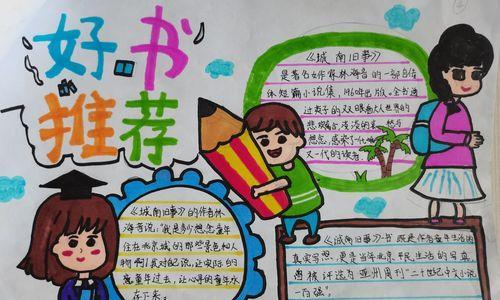 好书
推荐
《城南旧事》
是著名女作家林海音的一部自传
体短篇小说集，1960年出版，全书透
过英子的双眼看大人世界的
悲欢离合，淡淡的
感染了一代
又一代的读者。
《城南旧事》的作者林
海音说，"我是多少想念童年
住在北京城的那些景色和人
物啊！我对自己说，让实际的
童年过去，让心灵的童年永
存下来。
《城南旧事》一书，既是作者童年生活的
真实写照，更是当年北京平民生活的写真，
曾被评选为亚洲周刊"二十世纪中文小说
一百强"。